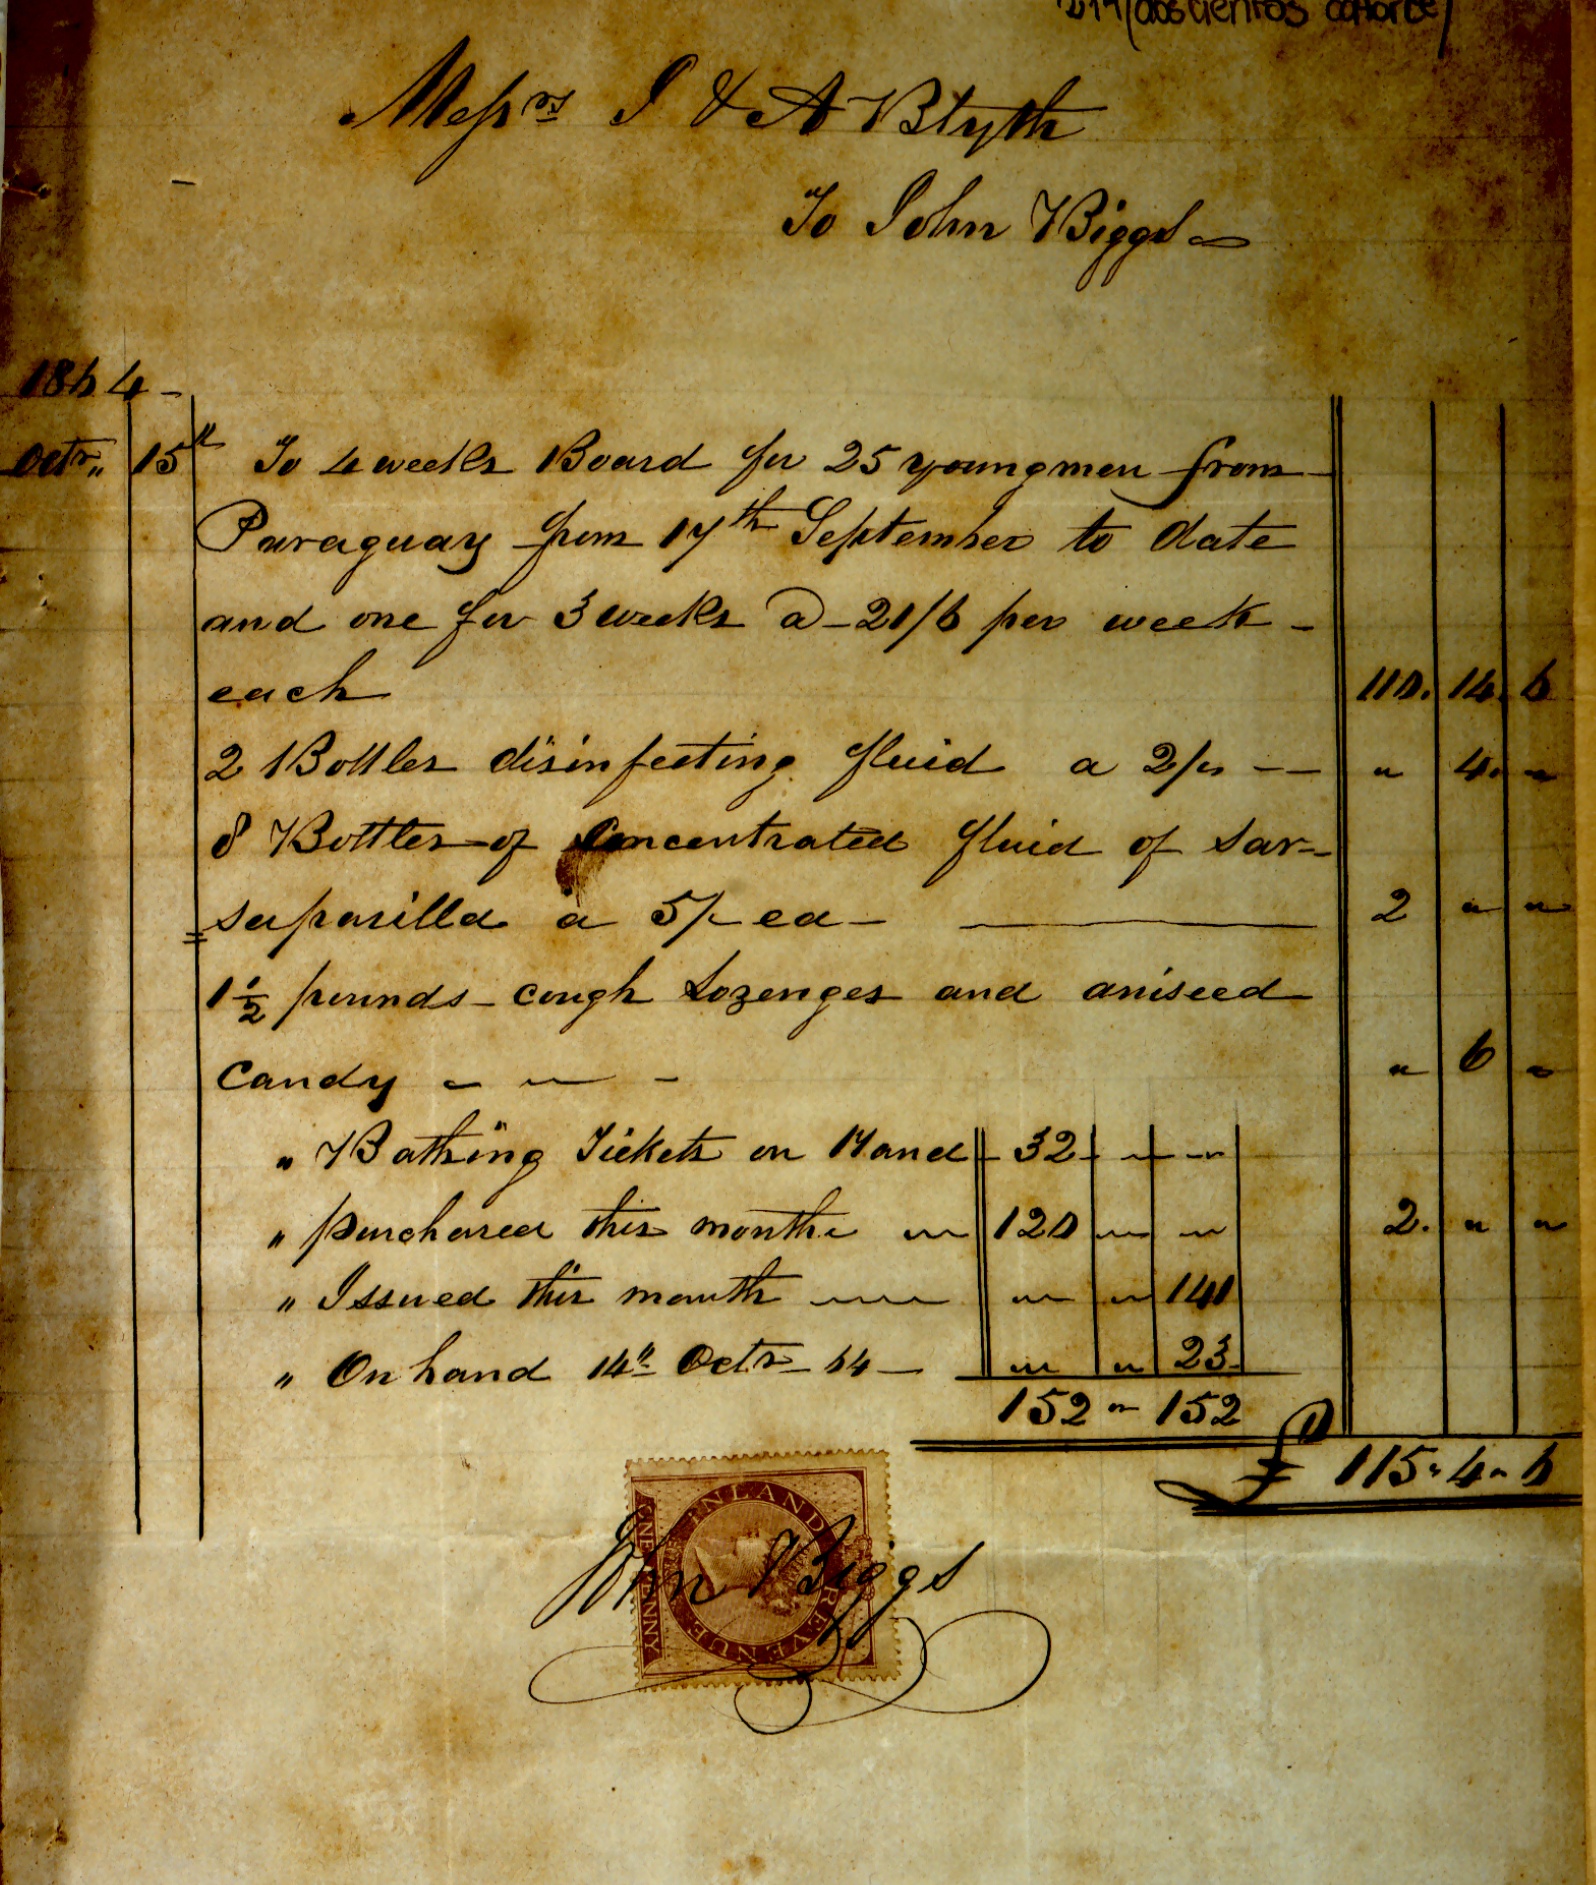 214 (doscientos catorce)
Messrs J & A Blyth
To John Biggs
1864
Octr 15th To 4 weeks Board for 25 young men from
Paraguay from 17th September to date
and one for 3 weeks @ 21/6 per week
each 110. 14. 6
2 Bottles disinfecting fluid a 2/- " 4. "
8 Bottles of Concentrated fluid of Sar=
saparilla a 5/- ea 2 " "
1 1/2 pounds cough Lozenges and aniseed
Candy " 6 "
" Bathing Tickets on Hand 32 " "
" purchased this month 120 " " 2. " "
" Issued this month " " 141
" On hand 14th Octr 64 " " 23
152 " 152
£ 115 " 4 " 6
INLAND REVENUE
ONE PENNY
John Biggs